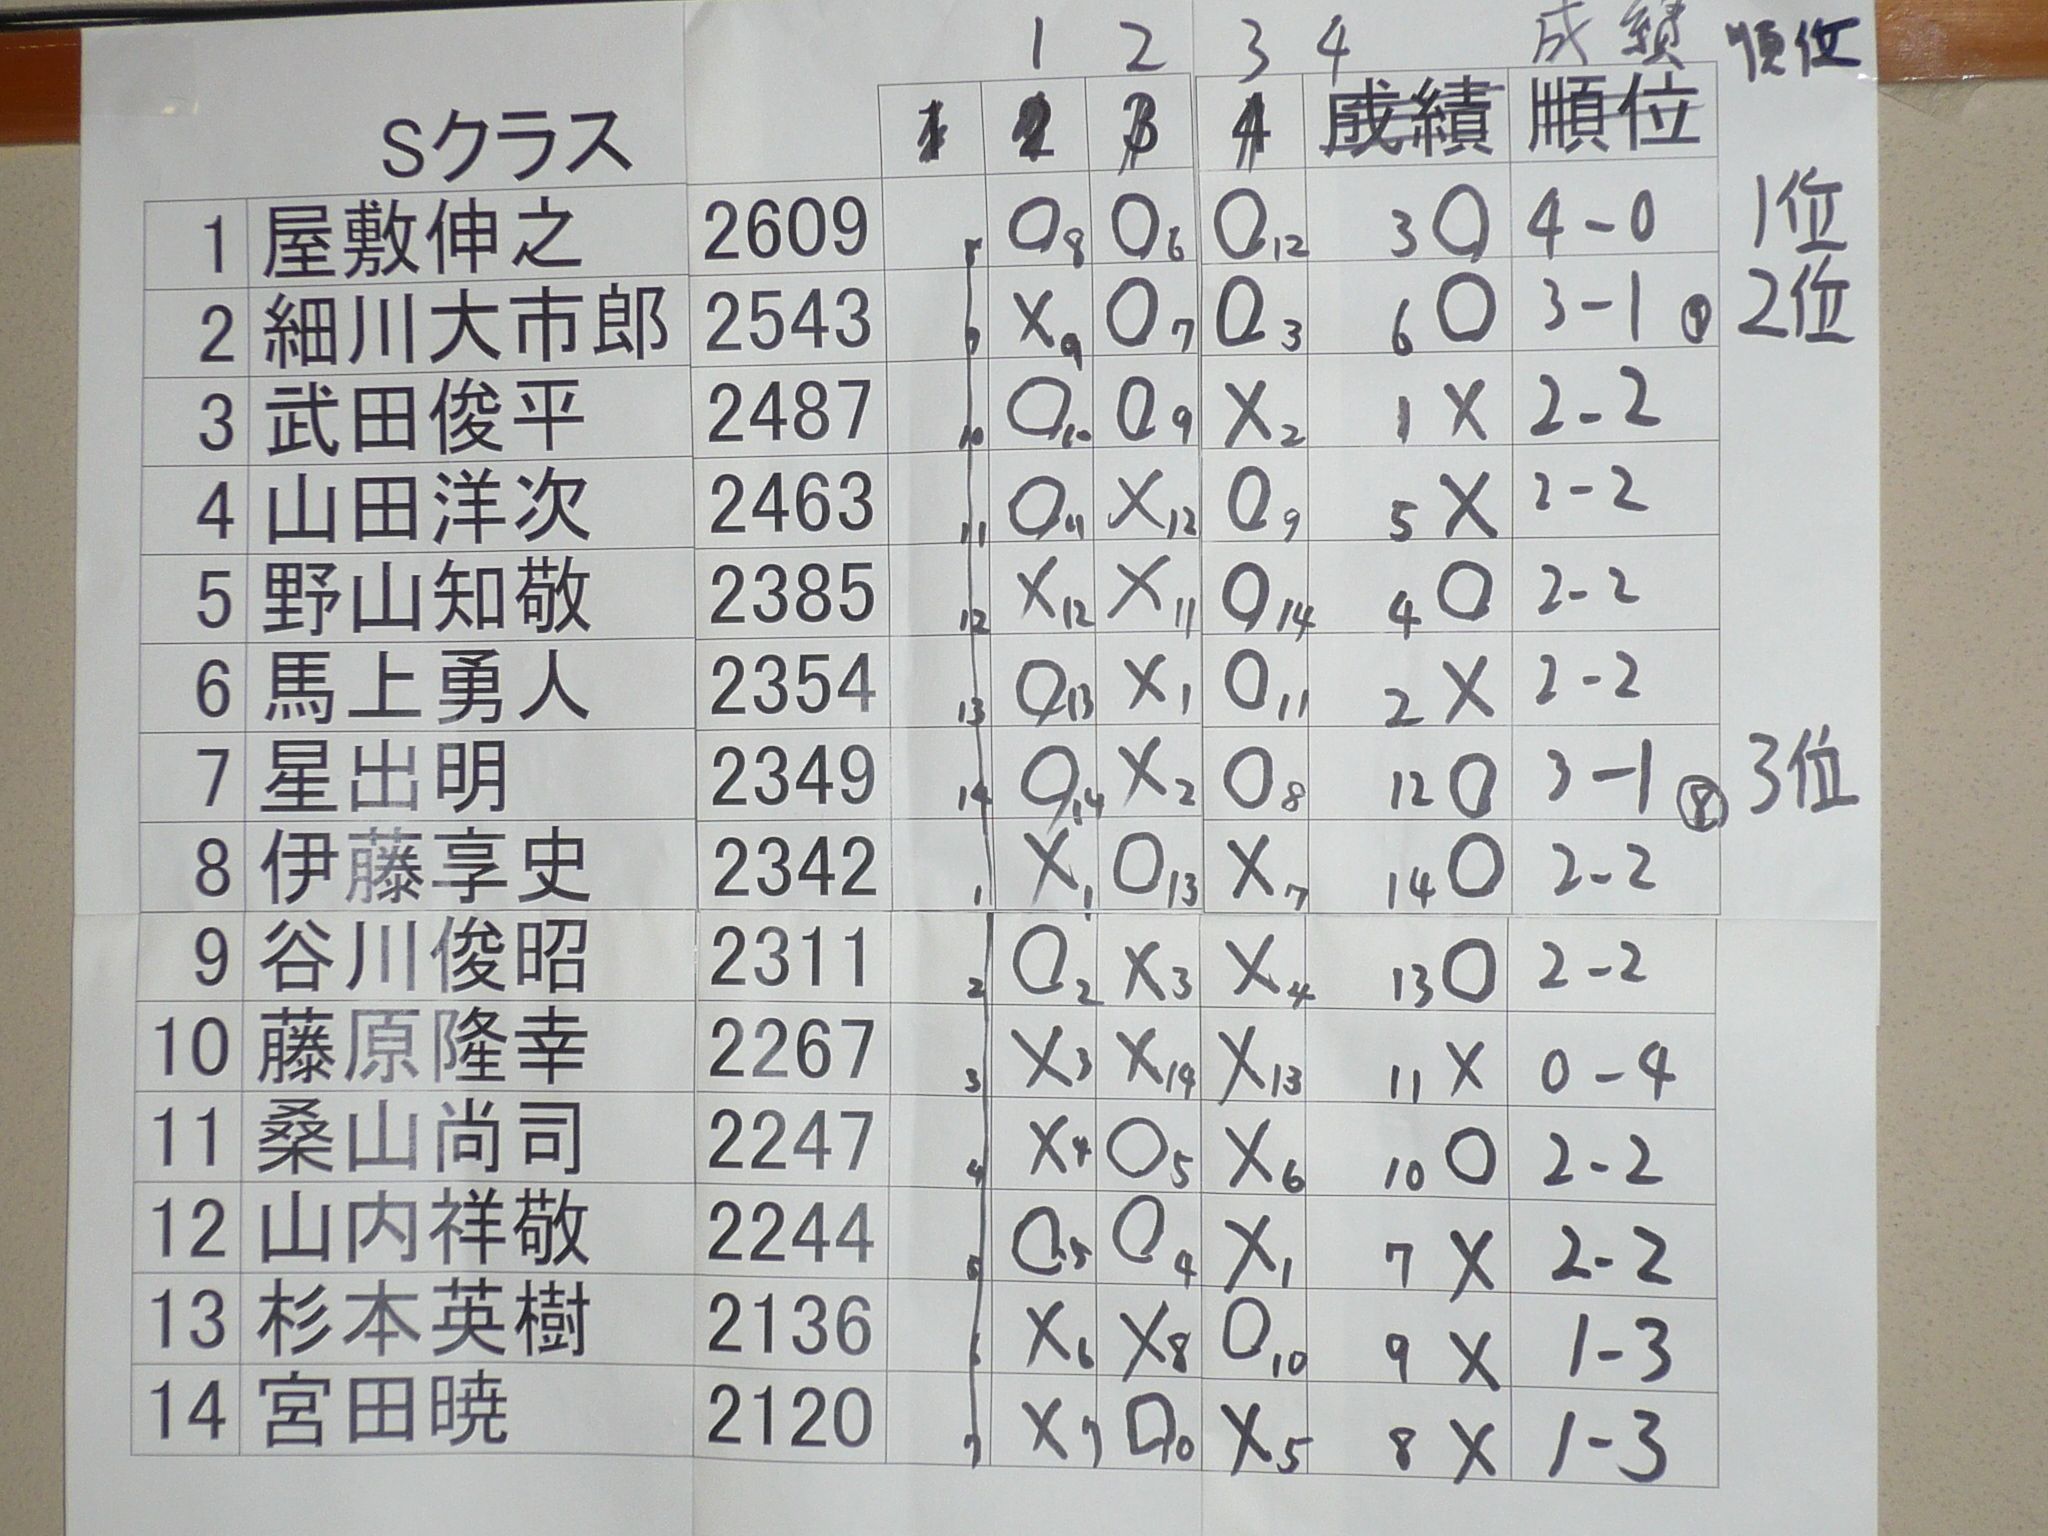 1 2 3 4 成績 順位
Sクラス 1 2 3 4 成績 順位
1 屋敷伸之 2609 8 〇8 〇6 〇12 3〇 4-0 1位
2 細川大市郎 2543 9 ×9 〇7 〇3 6〇 3-1 ⑨ 2位
3 武田俊平 2487 10 〇10 〇9 ×2 1× 2-2
4 山田洋次 2463 11 〇11 ×12 〇9 5× 2-2
5 野山知敬 2385 12 ×12 ×11 〇14 4〇 2-2
6 馬上勇人 2354 13 〇13 ×1 〇11 2× 2-2
7 星出明 2349 14 〇14 ×2 〇8 12〇 3-1 ⑧ 3位
8 伊藤享史 2342 1 ×1 〇13 ×7 14〇 2-2
9 谷川俊昭 2311 2 〇2 ×3 ×4 13〇 2-2
10 藤原隆幸 2267 3 ×3 ×14 ×13 11× 0-4
11 桑山尚司 2247 4 ×4 〇5 ×6 10〇 2-2
12 山内祥敬 2244 5 〇5 〇4 ×1 7× 2-2
13 杉本英樹 2136 6 ×6 ×8 〇10 9× 1-3
14 宮田暁 2120 7 ×7 〇10 ×5 8× 1-3